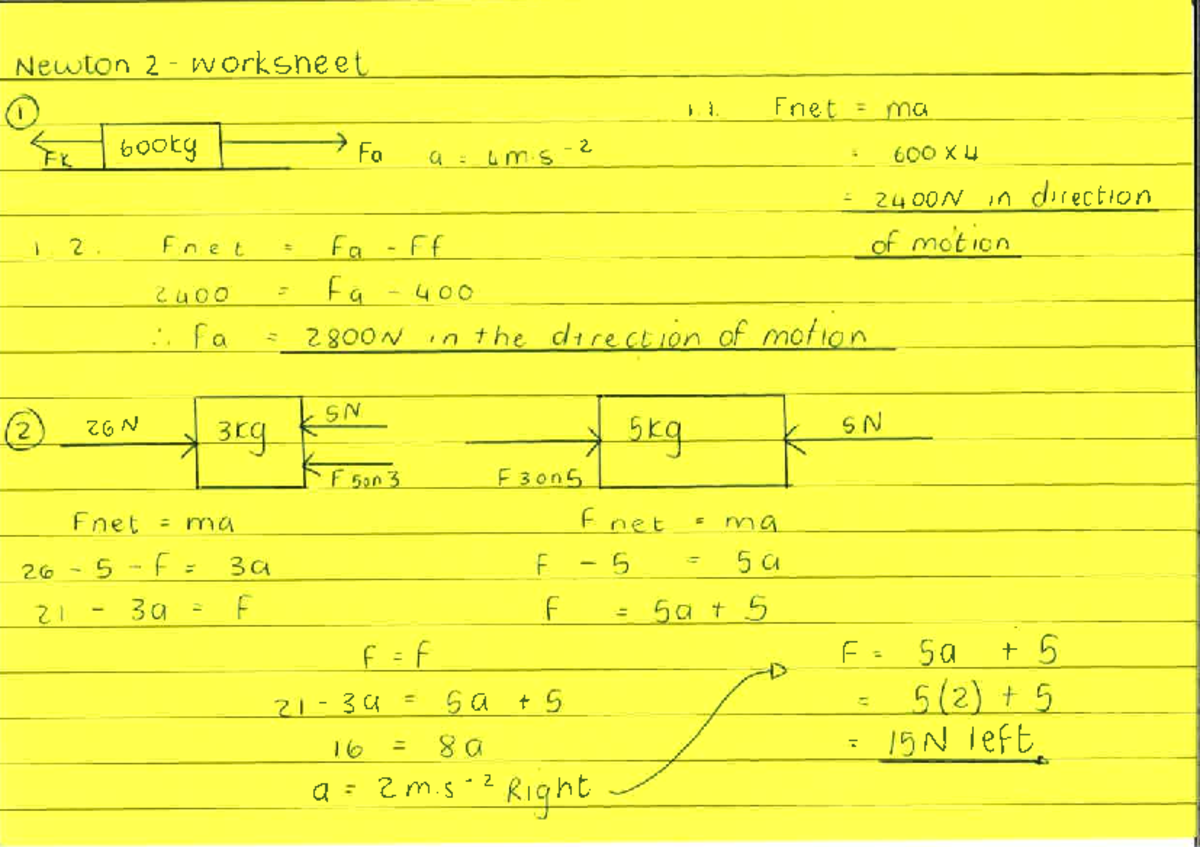 Newton 2 - worksheet
①
Fk
600kg
Fa
a = 4m·s⁻²
1.1. Fnet = ma
= 600 x 4
= 2400N in direction
of motion
1.2. Fnet = Fa - Ff
2400 = Fa - 400
∴ Fa = 2800N in the direction of motion
②
26N
3kg
5N
F 5on3
F 3on5
5kg
5N
Fnet = ma
26 - 5 - F = 3a
21 - 3a = F
Fnet = ma
F - 5 = 5a
F = 5a + 5
F = F
21 - 3a = 5a + 5
16 = 8a
a = 2m.s⁻² Right
F = 5a + 5
= 5(2) + 5
= 15N left.